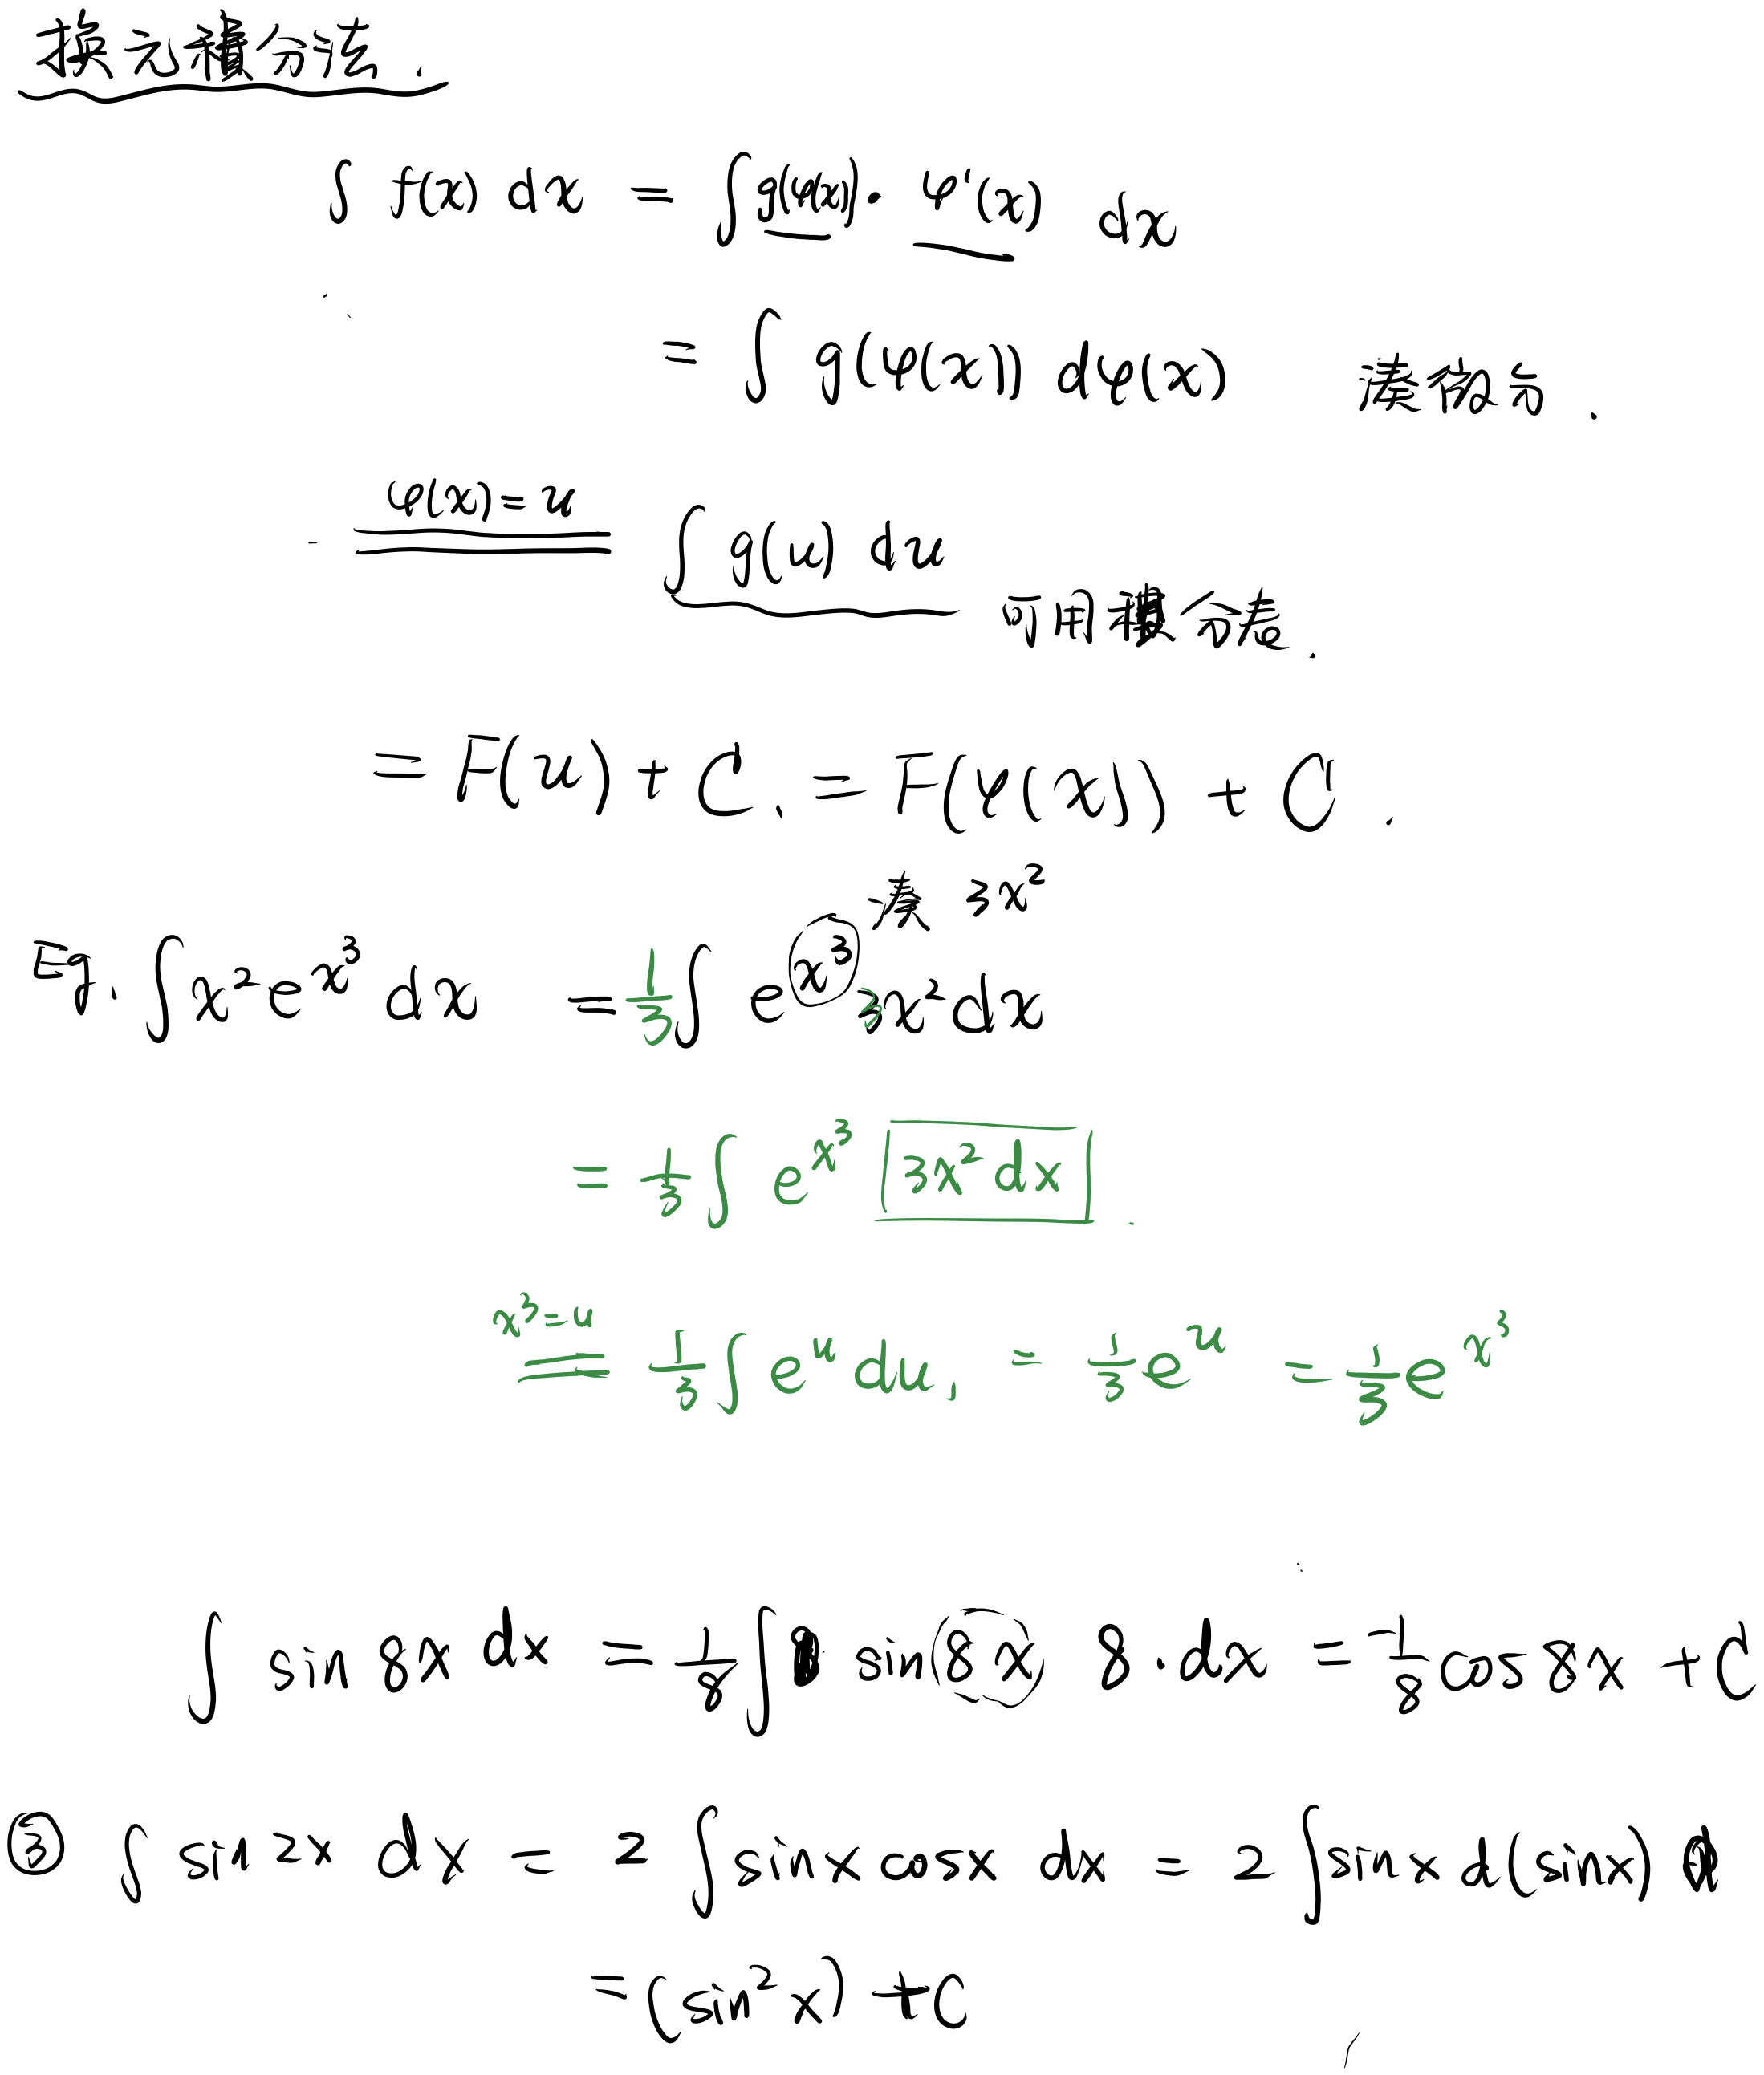 换元積分法.
∫ f(x) dx = ∫ g(φ(x)) · φ'(x) dx
= ∫ g(φ(x)) dφ(x) 凑微分.
φ(x) = u ∫ g(u) du 可用積分表.
= F(u) + C. = F(φ(x)) + C.
凑 3x²
Eg. ∫ x² e^{x³} dx = 1/3 ∫ e^{x³} 3x² dx
= 1/3 ∫ e^{x³} 3x² dx.
x³ = u 1/3 ∫ e^u du. = 1/3 e^u = 1/3 e^{x³}
∫ sin 8x dx = 1/8 ∫ sin 8x 8 · dx = -1/8 cos 8x + C
③ ∫ sin 2x dx = 2 ∫ sin x cos x dx = 2 ∫ sin x d(sin x)
= (sin² x) + C